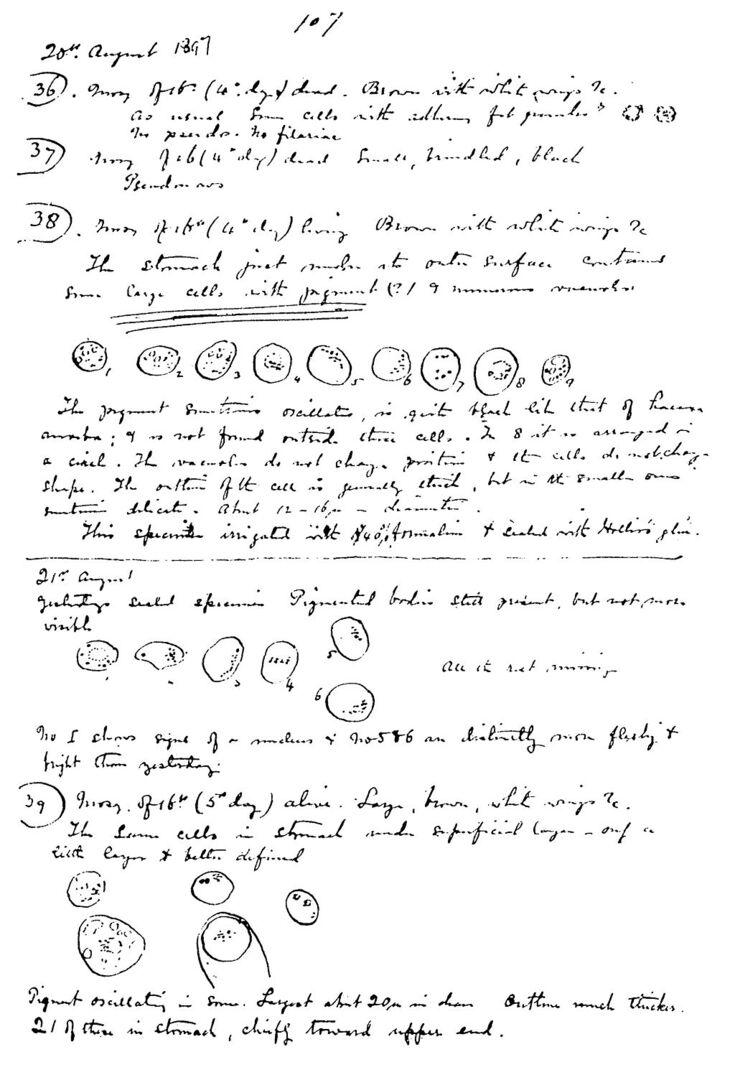 107
20th August 1897
36. Mosq of 16th (4th day) dead. Brown with white wings &c.
As usual some cells with adhering fat granules
No pseudo. No filariae
37 Mosq of 16 (4th day) dead small, brindled, black
Pseudonavs
38. Mosq of 16th (4th day) living Brown with white wings &c
The stomach just under its outer surface contains
some large cells with pigment (?) & numerous vacuoles
1 2 3 4 5 6 7 8 9
The pigment sometimes oscillates, is quite black like that of haema-
amoeba; & is not found outside these cells. In 8 it is arranged in
a circle. The vacuoles do not change position & the cells do not change
shape. The outline of the cell is generally thick, but in the smaller ones
sometimes delicate. About 12-16µ in diameter.
This specimen irrigated with 40% formalin & sealed with Hollis's glue.
21st August
Yesterday's sealed specimen Pigmented bodies still present, but not more
visible
3 4 5 6
All the rest missing
No 1 shows signs of a nucleus & no 5 & 6 are distinctly more fleshy &
bright than yesterday.
39 Mosq. of 16th (5th day) alive. Large, brown, white wings &c.
The same cells in stomach under superficial layer - only a
little larger & better defined
Pigment oscillating in some. Largest about 20µ in diam Outline much thicker.
21 of these in stomach, chiefly toward upper end.